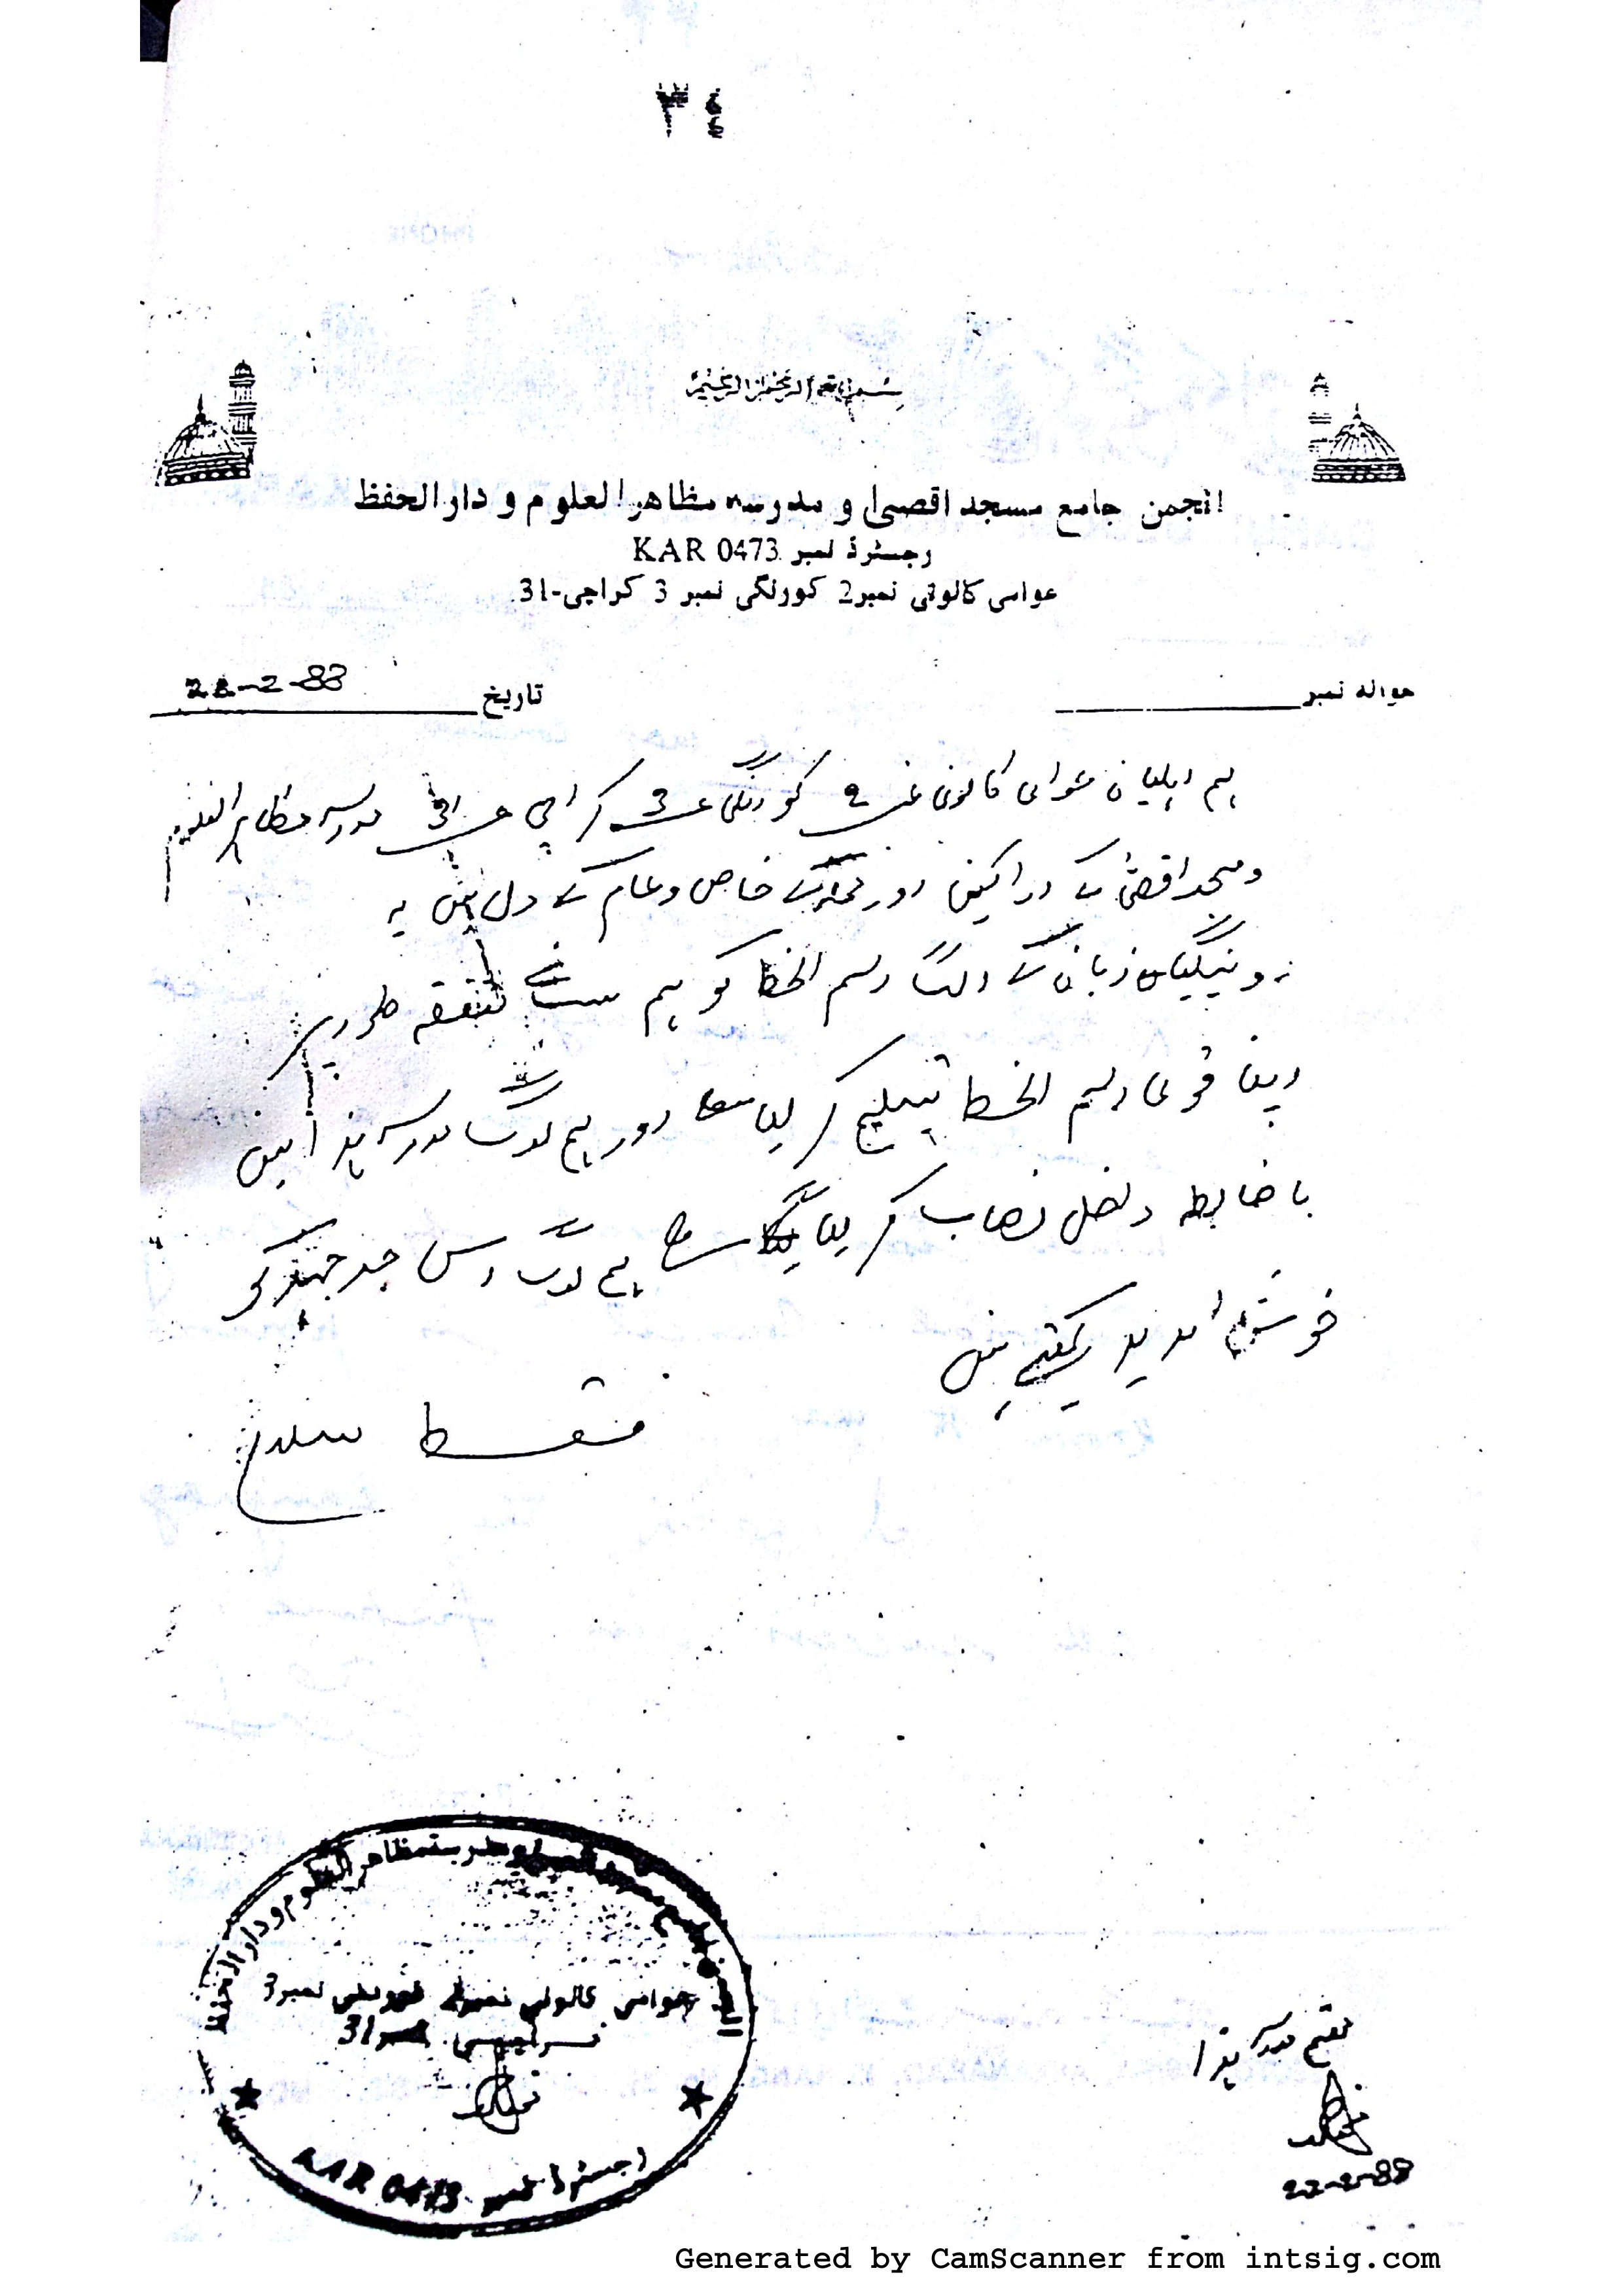 ٣٤
بسم الله الرحمن الرحيم
انجمن جامع مسجد اقصیٰ و مدرسه مظاهر العلوم و دار الحفظ
رجسٹرڈ نمبر KAR 0473
عوامی کالونی نمبر2 کورنگی نمبر 3 کراچی-31
حواله نمبر
تاریخ 22-2-88
ہم اہلیان عوامی کالونی نمبر 2 کورنگی 3 کراچی 31 مدرسہ مظاہر العلوم
ومسجد اقصیٰ کے اراکین اور محلہ کے خاص وعام کے دل میں یہ
روہنگیا زبان کے رسم الخط کو ہم متفقہ طور پر
اپنا قومی رسم الخط تسلیم کر لیا اور ہم لوگ مدرسہ ہذا میں
با ضابطہ داخل نصاب کر لیا ہم لوگ اس جد جہد کو
خوش آمدید کہتے ہیں
فقط سلام
عوامی کالونی نمبر2 کورنگی نمبر3
کراچی نمبر31
رجسٹرڈ نمبر KAR 0473
مہتمم مدرسہ ہذا
22-2-88
Generated by CamScanner from intsig.com